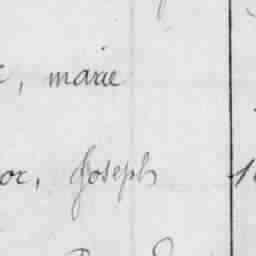 , marie
or, Joseph 1